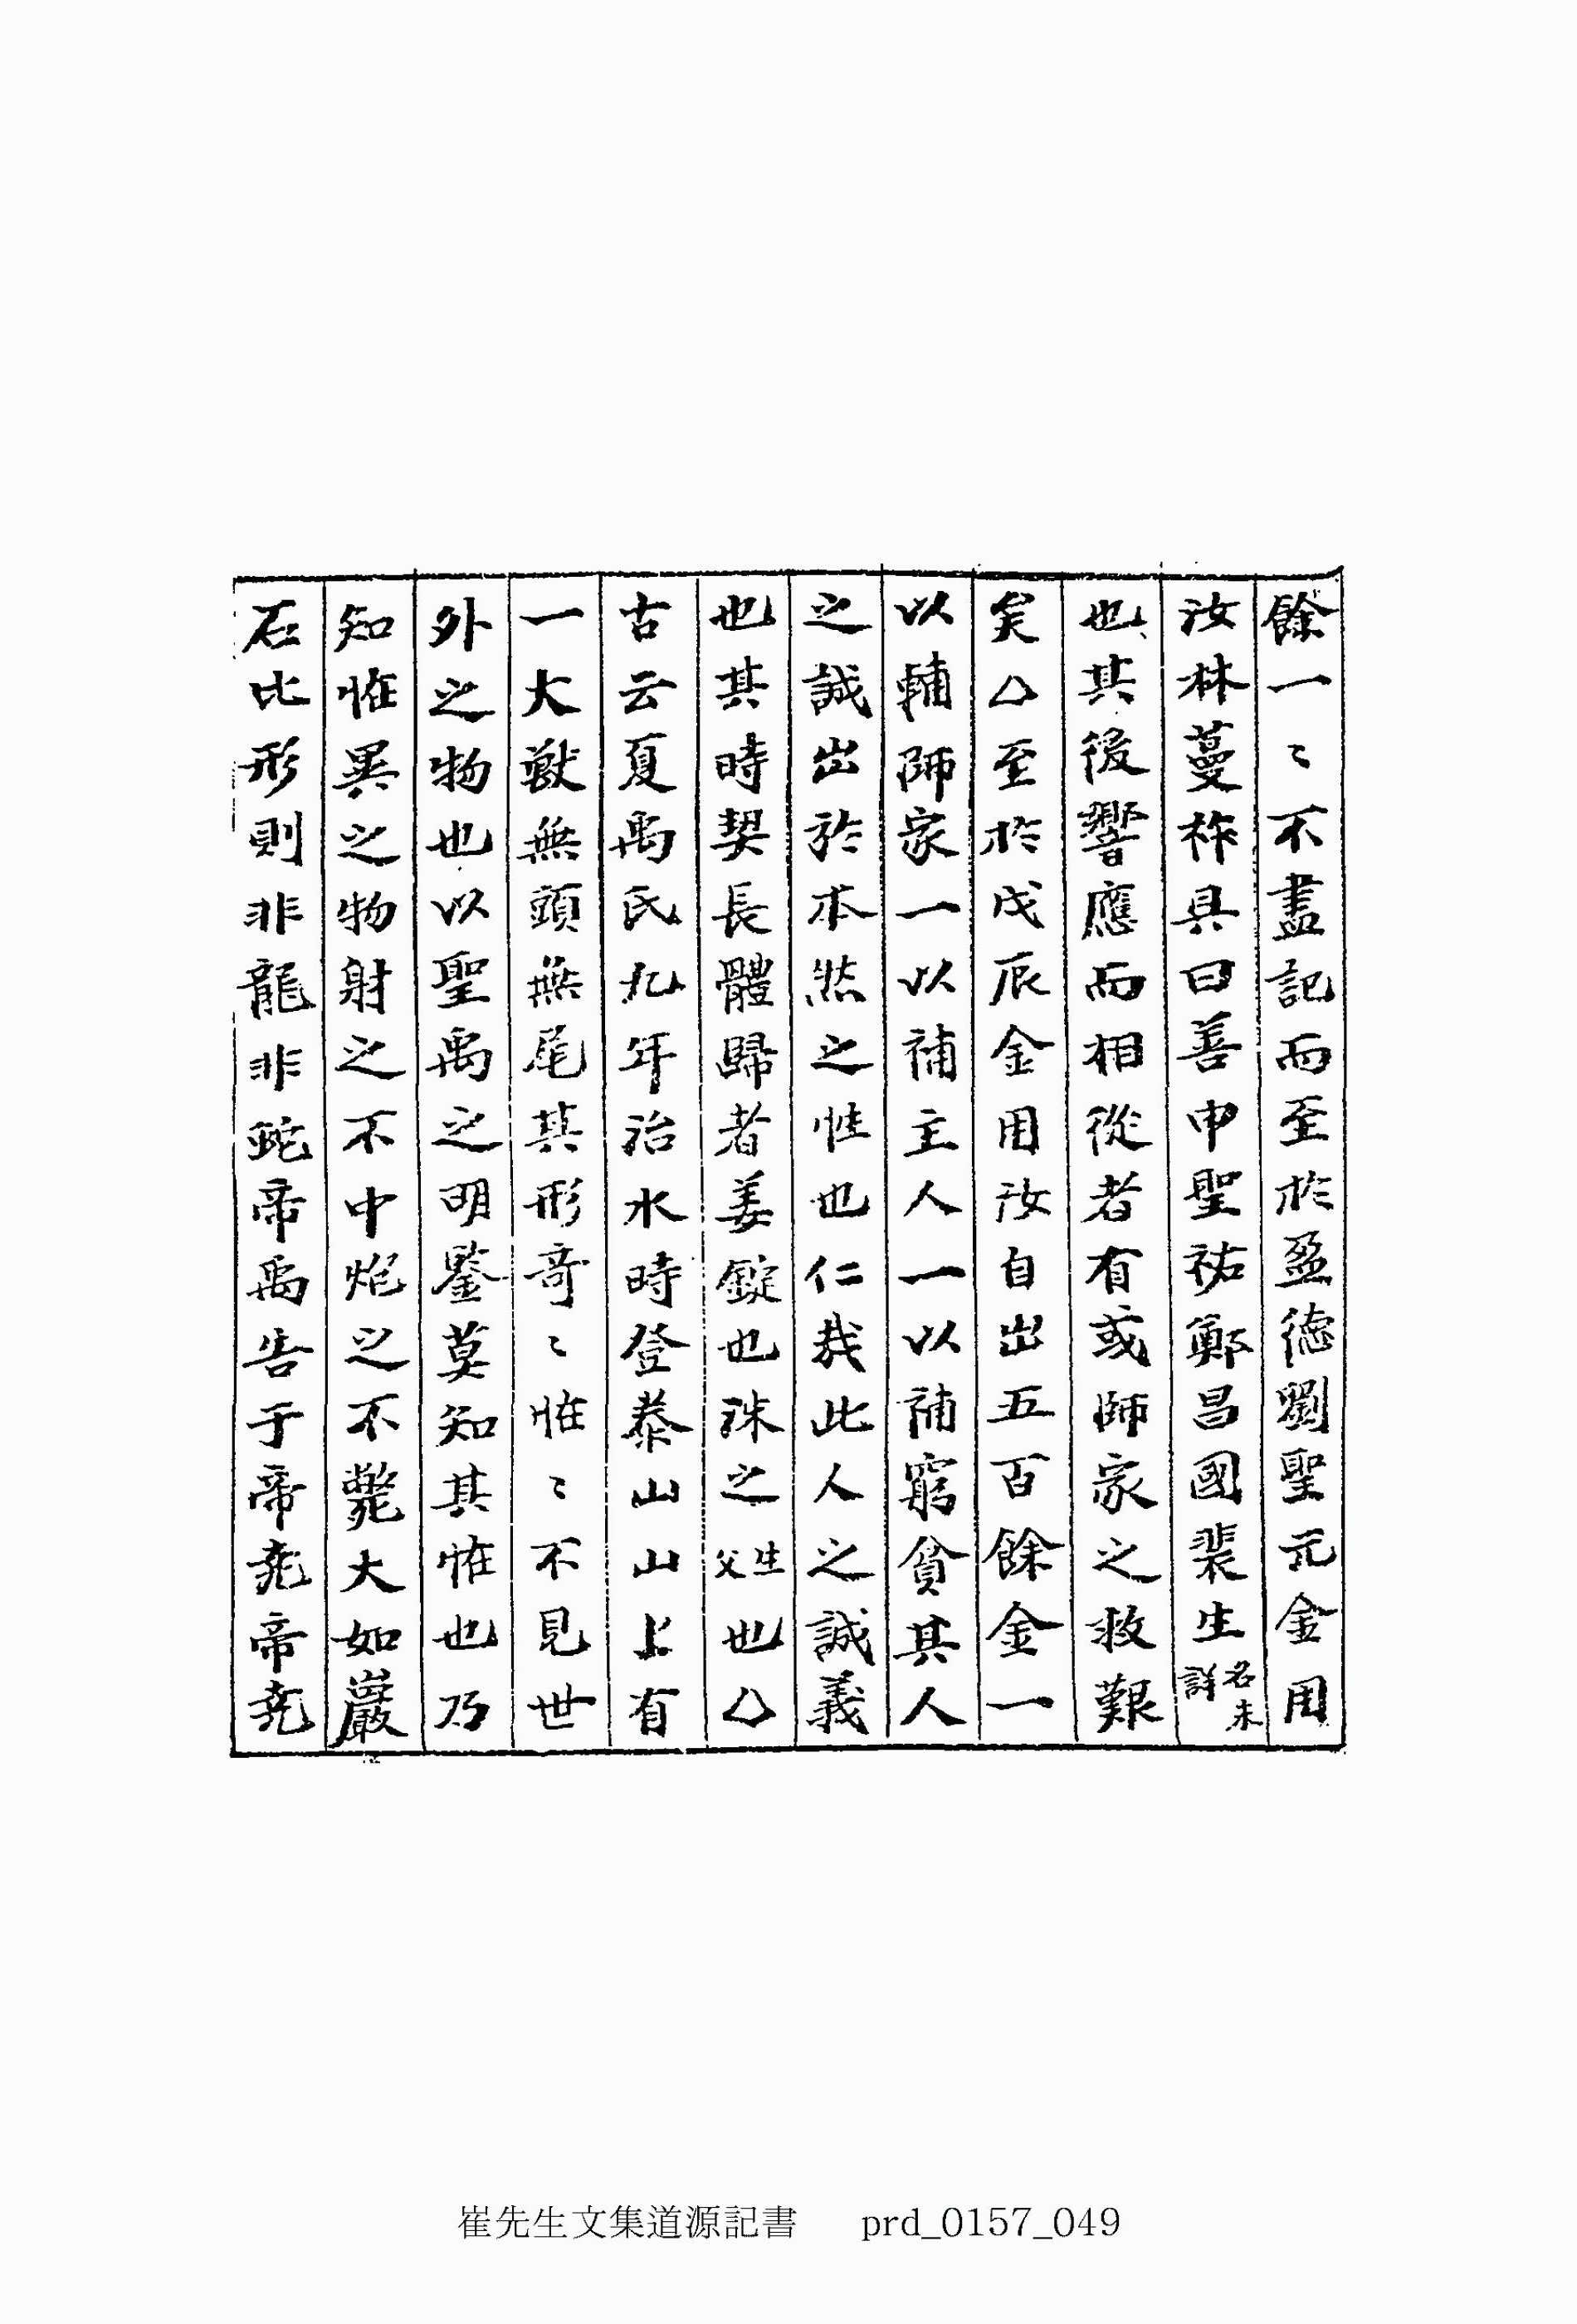 餘一〻不盡記而至於盈德劉聖元金用
汝林蔓祚具曰善申聖祐鄭昌國裴生名未詳
也其後響應而相從者有或師家之救艱
矣△至於戊辰金用汝自出五百餘金一
以輔師家一以補主人一以補窮貧其人
之誠出於本然之性也仁哉此人之誠義
也其時契長體歸者姜錠也洙之生父也△
古云夏禹氏九年治水時登泰山山上有
一大獸無頭無尾其形奇〻恠〻不見世
外之物也以聖禹之明鑒莫知其恠也乃
知恠異之物射之不中炮之不斃大如巖
石比形則非龍非蛇帝禹告于帝堯帝堯
崔先生文集道源記書 prd_0157_049